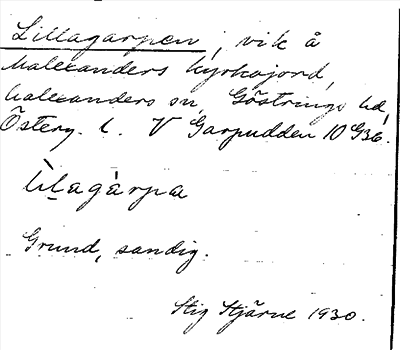 Lillagarpen, vik å
Malexanders kyrkojord,
Malexanders sn, Göstrings hd,
Österg. l. V Garpudden 10 G36.
lìlagàrpa
Grund, sandig.
Stig Stjärne 1930.